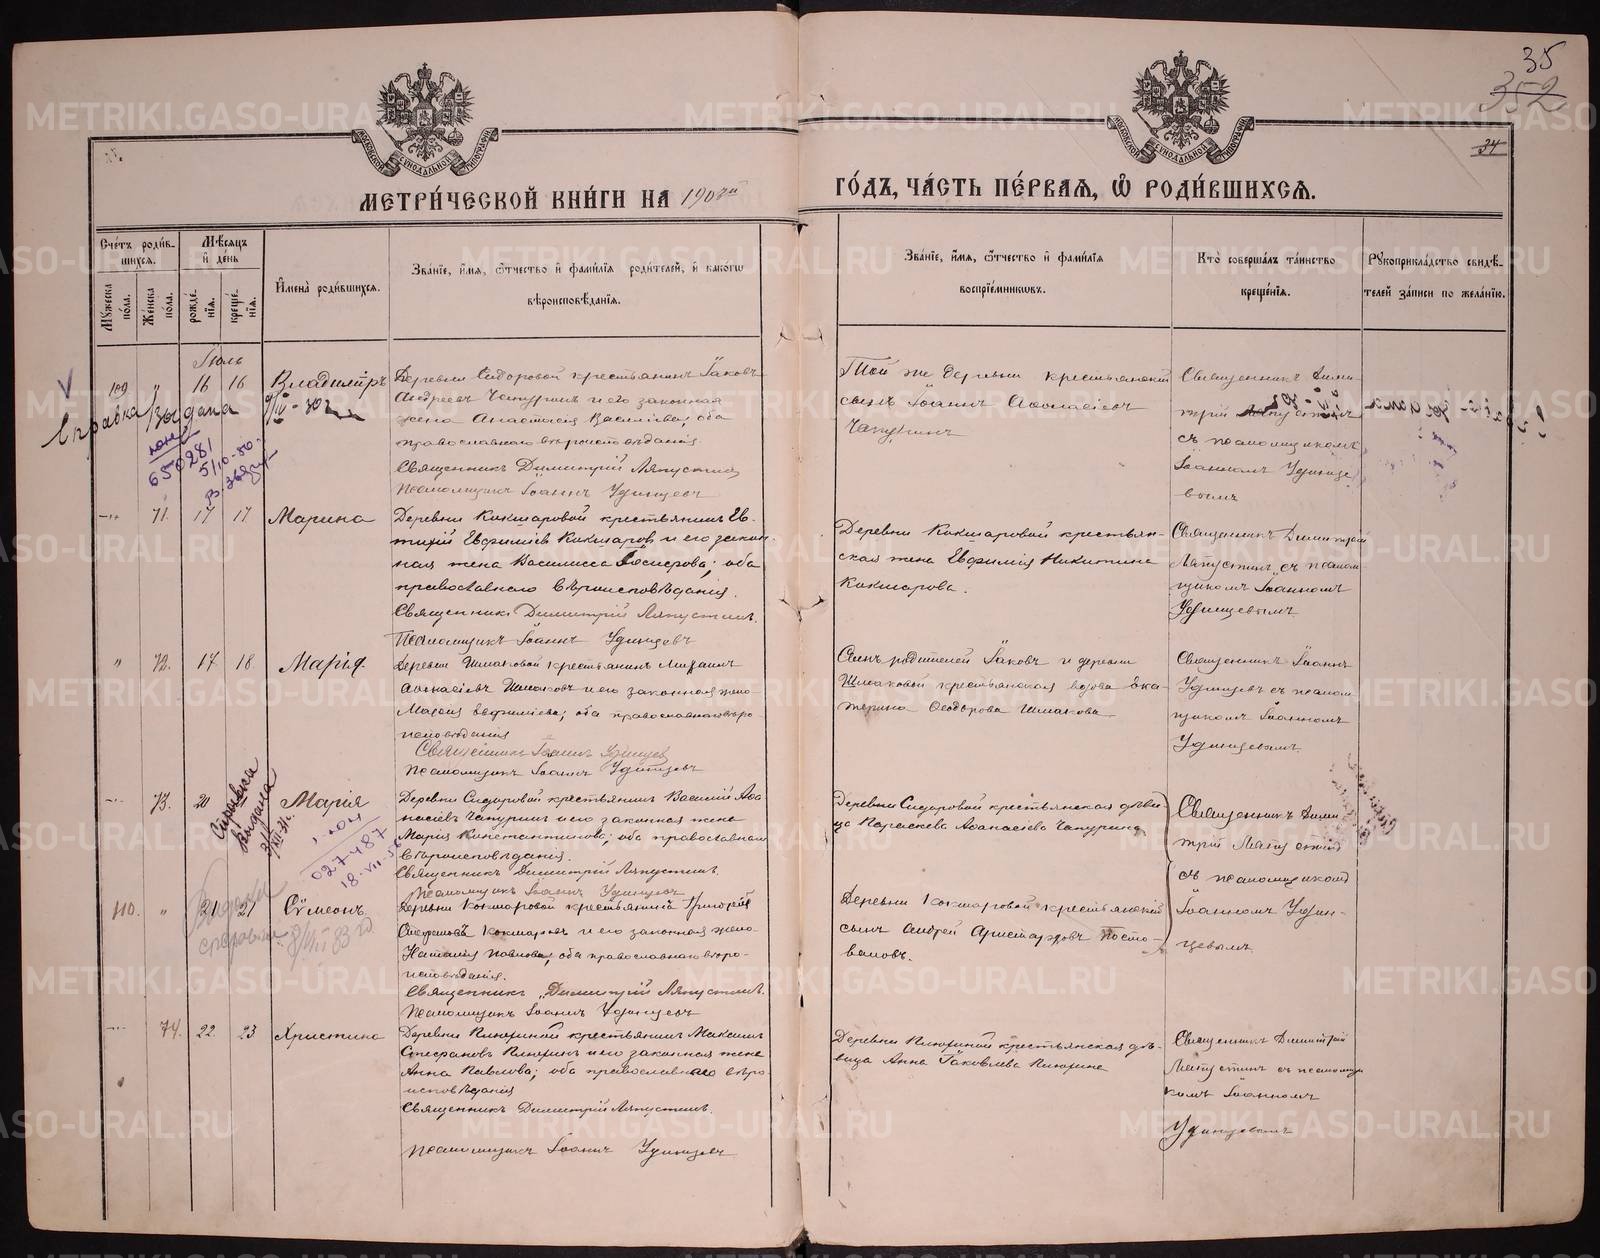 35
352
34
МЕТРИ́ЧЕСКОЙ КНИ́ГИ НА
ГО́ДЪ, ЧА́СТЬ ПЕ́РВАѦ, Ѡ҆ РОДИ́ВШИХСѦ.
Сче́тъ роди́в-
шихсѧ.
Мѣ́сѧцъ
и҆ де́нь
Мꙋ́жеска
по́ла.
Же́нска
по́ла.
рожде́-
нїѧ.
креще́-
нїѧ.
И҆мена̀ роди́вшихсѧ.
Зва́нїе, и҆́мѧ, ѻ҆́тчество и҆ фами́лїѧ роди́телей, и҆ како́гѡ
вѣроисповѣ́данїѧ.
Зва́нїе, и҆́мѧ, ѻ҆́тчество и҆ фами́лїѧ
воспрїе́мникѡвъ.
Кто̀ соверша́лъ та́инство
креще́нїѧ.
Рꙋкоприкла́дство свидѣ́-
телей за́писи по жела́нїю.
Іюль
109 " 16 16 Владиміръ
Деревни Сидоровой крестьянинъ Іаковъ
Андреевъ Чапуринъ и его законная
жена Анастасія Васильева; оба
православнаго вѣроисповѣданія
Священникъ Димитрій Ляпустинъ
Псаломщикъ Іоаннъ Удинцевъ
Той же деревни крестьянскій
сынъ Іоаннъ Аѳанасіевъ
Чапуринъ
Священникъ Дими-
трій Ляпустинъ
съ псаломщикомъ
Іоанномъ Удинце-
вымъ
Справка выдана
650281
5/10-50
71. 17 17 Марина
Деревни Кокшаровой крестьянинъ Ев-
тихій Евфиміевъ Кокшаровъ и его закон-
ная жена Василисса; оба
православнаго вѣроисповѣданія.
Священникъ Димитрій Ляпустинъ.
Псаломщикъ Іоаннъ Удинцевъ
Деревни Кокшаровой крестьян-
ская жена Евфимія Никитина
Кокшарова.
Священникъ Димитрій
Ляпустинъ съ псалом-
щикомъ Іоанномъ
Удинцевымъ
" 72. 17. 18. Марія
Деревни Шмаковой крестьянинъ Михаилъ
Аѳанасіевъ Шмаковъ и его законная жена
Марія Евфиміева; оба православнаго вѣро-
исповѣданія
Священникъ Іоаннъ Удинцев
Псаломщикъ Іоаннъ Удинцевъ
Сынъ родителей Іаковъ и деревни
Шмаковой крестьянская вдова Ека-
терина Ѳеодорова Шмакова
Священникъ Іоаннъ
Удинцевъ съ псалом-
щикомъ Іоанномъ
Удинцевымъ.
73. 20 Марія
Деревни Сидоровой крестьянинъ Василій Аѳа-
насіевъ Чапуринъ и его законная жена
Марія Константинова; оба православнаго
вѣроисповѣданія.
Священникъ Димитрій Ляпустинъ.
Псаломщикъ Іоаннъ Удинцевъ
Деревни Сидоровой крестьянская дѣви-
ца Параскева Аѳанасіева Чапурина
Священникъ Дими-
трій Ляпустинъ
съ псаломщикомъ
Іоанномъ Удин-
цевымъ.
Справка
выдана
027487
18-VII-56
110. " 21 21 Сѵмеонъ
Деревни Кокшаровой крестьянинъ Григорій
Стефановъ Кокшаровъ и его законная жена
Наталія Павлова; оба православнаго вѣро-
исповѣданія.
Священникъ Димитрій Ляпустинъ.
Псаломщикъ Іоаннъ Удинцевъ
Деревни Кокшаровой крестьянскій
сынъ Андрей Аристарховъ Посто-
валовъ.
74. 22. 23 Христина
Деревни Ключиной крестьянинъ Максимъ
Стефановъ и его законная жена
Анна Павлова; оба православнаго вѣро-
исповѣданія
Священникъ Димитрій Ляпустинъ.
Псаломщикъ Іоаннъ Удинцевъ
крестьянская дѣ-
вица Анна Іаковлева
Священникъ Димитрій
Ляпустинъ съ псаломщи-
комъ Іоанномъ
Удинцевымъ
METRIKI.GASO-URAL.RU